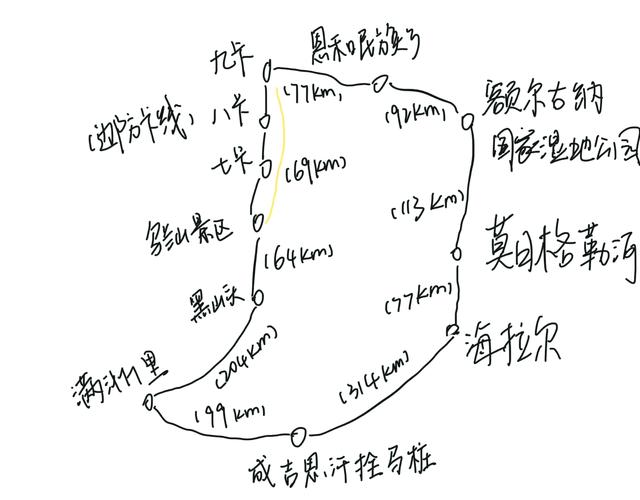 九卡
恩和民族乡
(77km)
(92km)
额尔古纳
国家湿地公园
(边防卡线)
八卡
七卡
(69km)
(113km)
景区
(64km)
莫日格勒河
黑山头
(77km)
海拉尔
满洲里
(204km)
(314km)
(99km)
成吉思汗拴马桩